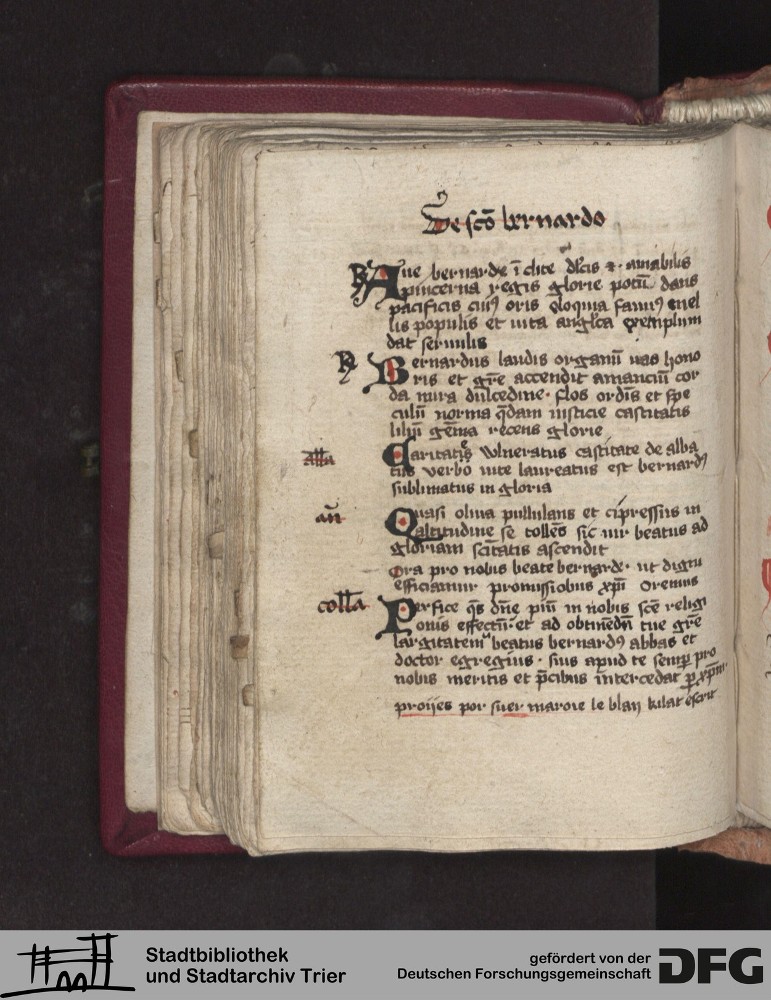 De sc̄o bernardo
R Aue bernarde īclite dl̄cis ⁊ amabilis
pincerna regis glorie potū dans
pacificis cuiꝰ oris eloquia famuꝰ mel
lis populis et vita angl̄ca exemplum
dat seruulis
R Bernardus laudis organū uas hono
ris et gr̄e accendit amanciū cor
da mira dulcedine · flos ordīs et spe
culū norma q̄dam iusticie castitatis
liliū gēma recens glorie
Caritatis vulneratus castitate de alba
tus verbo uite laureatus est bernardꝰ
sublimatus in gloria
an̄ Quasi oliua pullulans et cipressus in
altitudine se tollēs sic uir beatus ad
gloriam scītatis ascendit
Ora pro nobis beate bernarde · ut digni
efficiamur promissiobus xp̄i Oremus
coll̄a Perfice qs dn̄e piū in nobis sc̄e religi
onis effectū · et ad obtinēdā tue gr̄e
largitatem beatus bernardꝰ abbas et
doctor egregius · suis apud te semp̄ pro
nobis meritis et p̄cibus intercedat p̄ xp̄m
proijes por suer maroie le blan kilat escrit
Stadtbibliothek
und Stadtarchiv Trier
gefördert von der
Deutschen Forschungsgemeinschaft
DFG